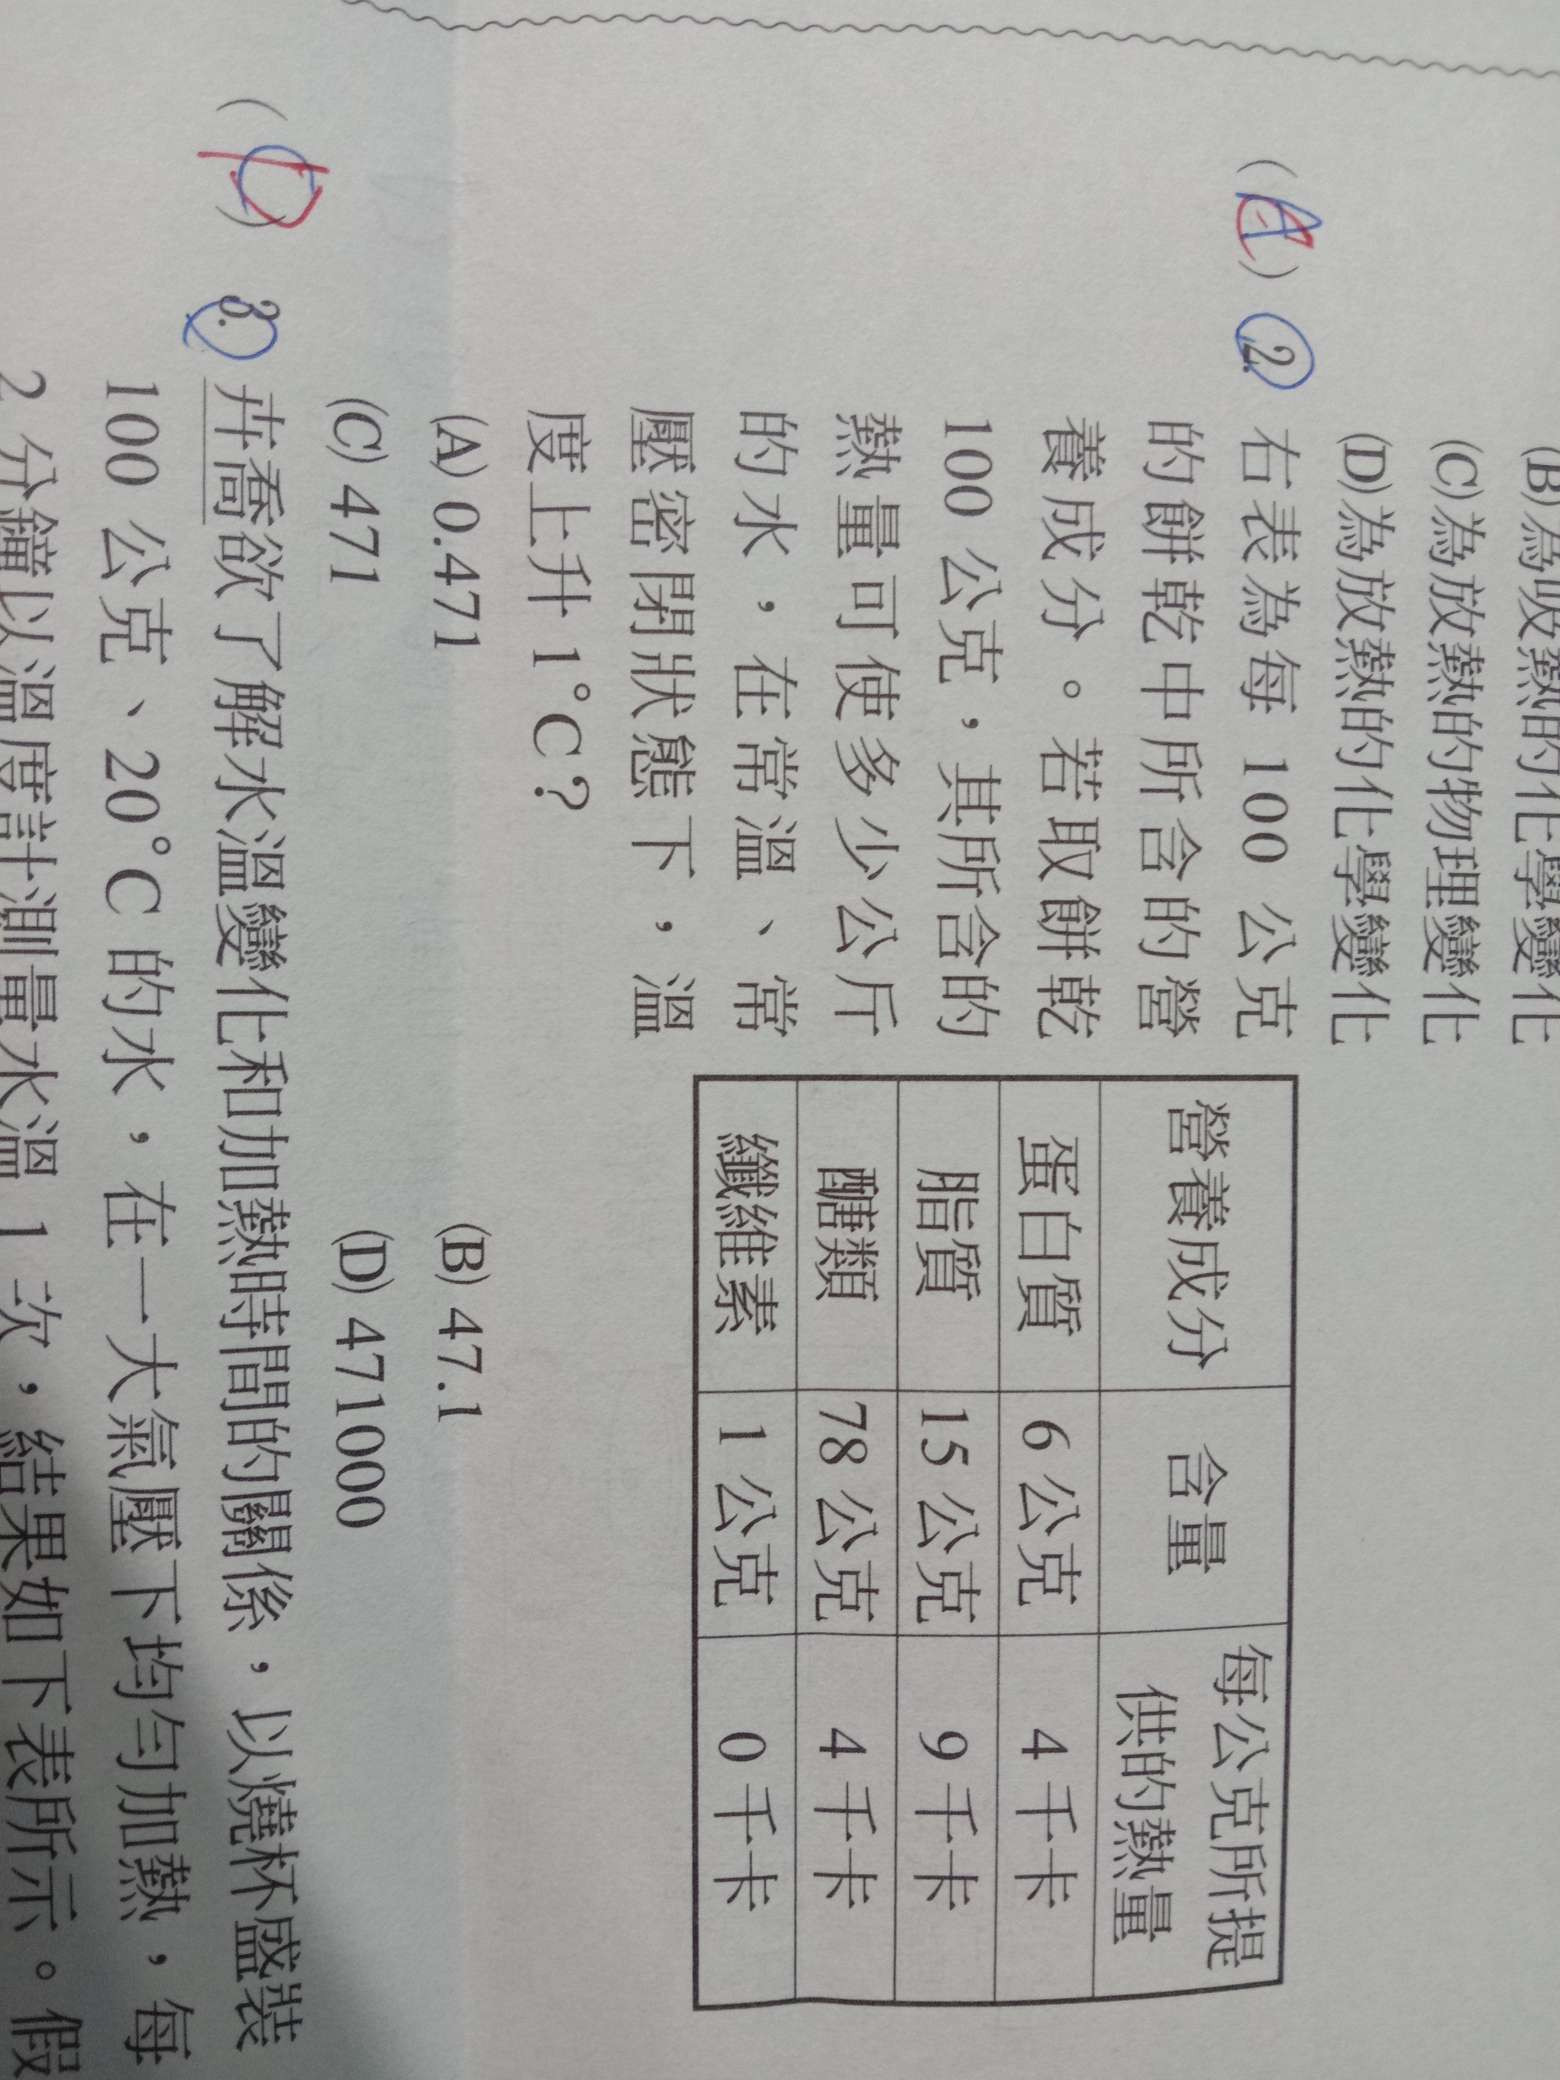 (B)為吸熱的化學變化
(C)為放熱的物理變化
(D)為放熱的化學變化
(A) 2. 右表為每 100 公克
的餅乾中所含的營
養成分。若取餅乾
100 公克，其所含的
熱量可使多少公斤
的水，在常溫、常
壓密閉狀態下，溫
度上升 1°C？
營養成分 含量 每公克所提供的熱量
蛋白質 6 公克 4 千卡
脂質 15 公克 9 千卡
醣類 78 公克 4 千卡
纖維素 1 公克 0 千卡
(A) 0.471 (B) 47.1
(C) 471 (D) 471000
( ) 3. 卉喬欲了解水溫變化和加熱時間的關係，以燒杯盛裝
100 公克、20°C 的水，在一大氣壓下均勻加熱，每
2 分鐘以溫度計測量水溫 1 次，結果如下表所示。假